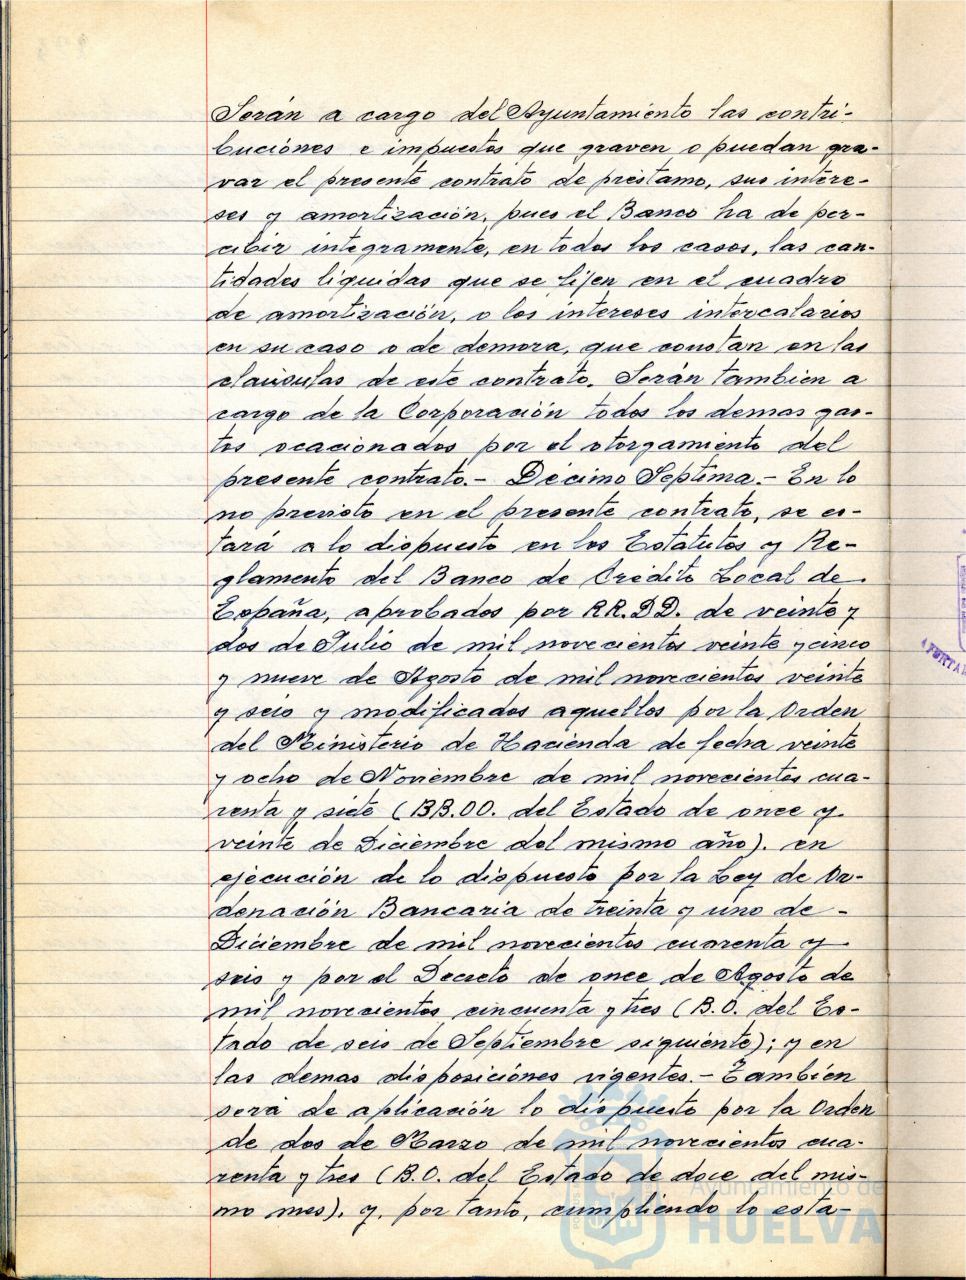 Serán a cargo del Ayuntamiento las contri-
buciónes e impuestos que graven o puedan gra-
var el presente contrato de prestamo, sus intere-
ses y amortización, pues el Banco ha de per-
cibir integramente, en todos los casos, las can-
tidades liquidas que se fijen en el cuadro
de amortización, o los intereses intercalarios
en su caso o de demora, que constan en las
clausulas de este contrato. Serán tambien a
cargo de la Corporación todos los demas gas-
tos ocacionados por el otorgamiento del
presente contrato.- Décimo Septima.- En lo
no previsto en el presente contrato, se es-
tará a lo dispuesto en los Estatutos y Re-
glamento del Banco de Crédito Local de
España, aprobados por RR.DD. de veinte y
dos de Julio de mil novecientos veinte y cinco
y nueve de Agosto de mil novecientos veinte
y seis y modificados aquellos por la Orden
del Ministerio de Hacienda de fecha veinte
y ocho de Noviembre de mil novecientos cua-
renta y siete (BB.OO. del Estado de once y
veinte de Diciembre del mismo año). en
ejecución de lo dispuesto por la Ley de Or-
denación Bancaria de treinta y uno de -
Diciembre de mil novecientos cuarenta y
seis y por el Decreto de once de Agosto de
mil novecientos cincuenta y tres (B.O. del Es-
tado de seis de Septiembre siguiente); y en
las demas disposiciónes vigentes.- Tambien
será de aplicación lo dispuesto por la Orden
de dos de Marzo de mil novecientos cua-
renta y tres (B.O. del Estado de doce del mis-
mo mes). y, por tanto, cumpliendo lo esta-
Ayuntamiento de
HUELVA